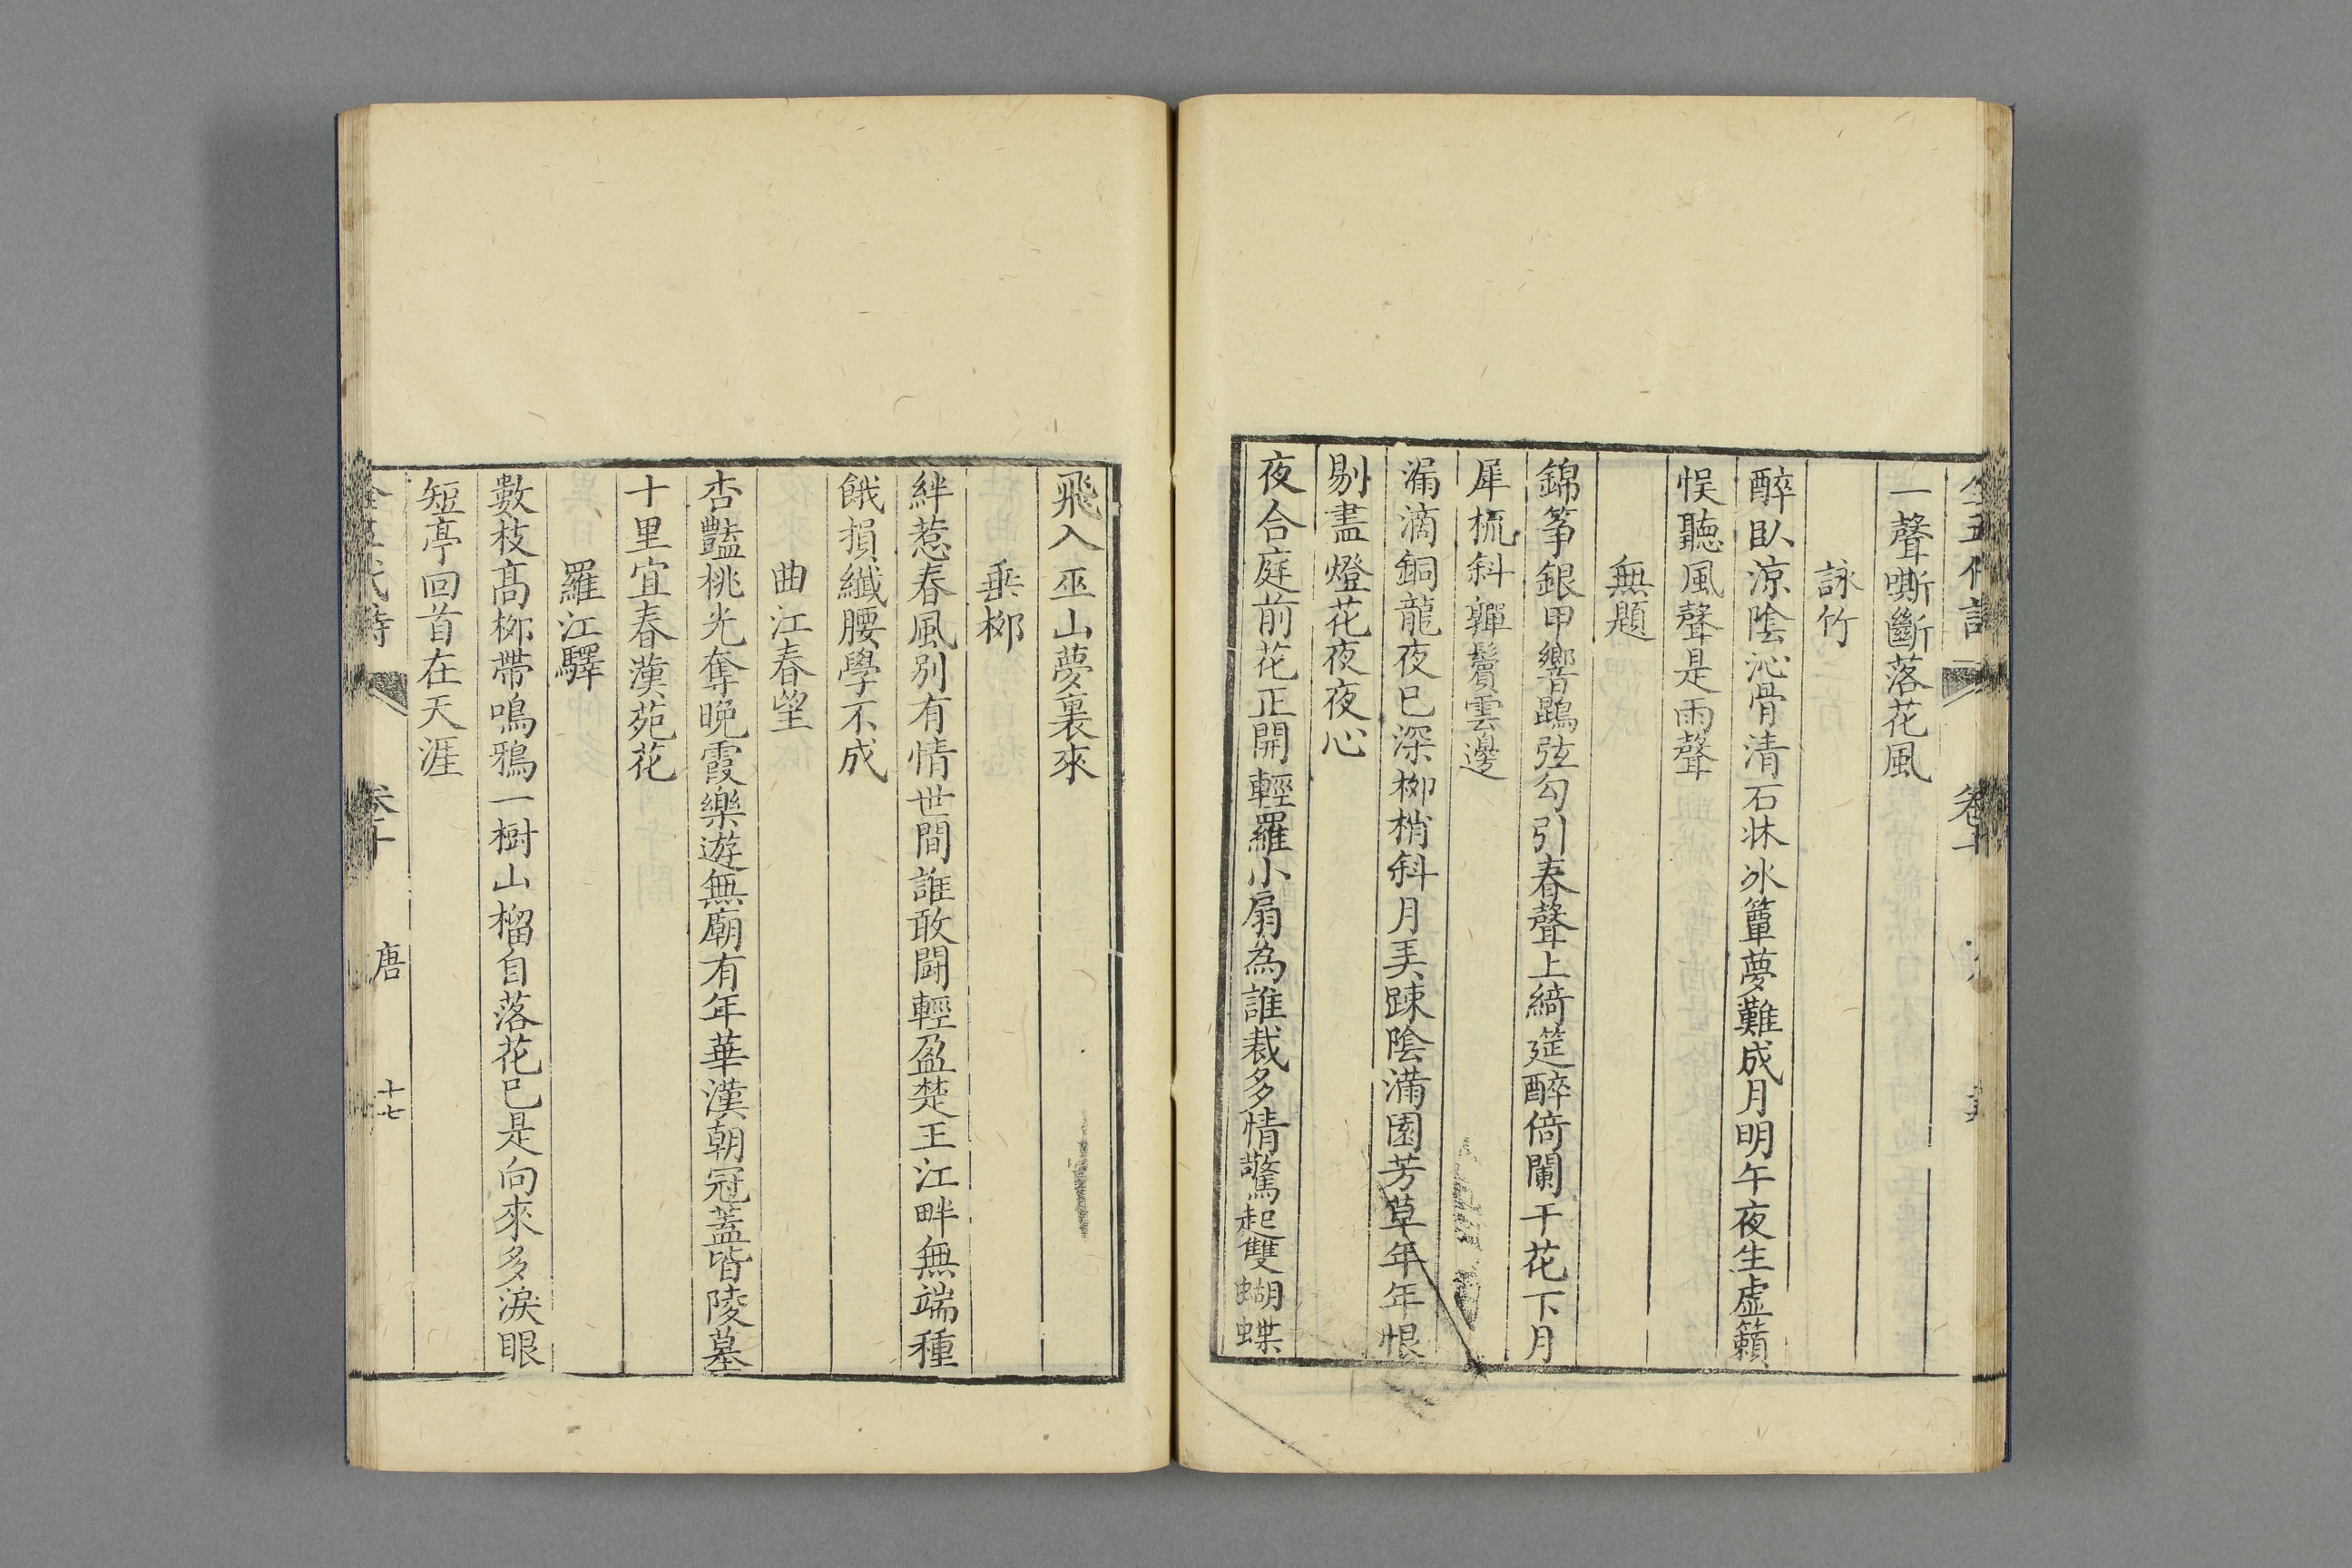 一聲嘶斷落花風
詠竹
醉臥涼陰沁骨清石牀冰簟夢難成月明午夜生虛籟
悮聽風聲是雨聲
無題
錦筝銀甲響鵾弦勾引春聲上綺筵醉倚闌干花下月
犀梳斜嚲鬢雲邊
漏滴銅龍夜已深栁梢斜月弄踈陰滿園芳草年年恨
剔盡燈花夜夜心
夜合庭前花正開輕羅小扇為誰裁多情驚起雙蝴蝶
飛入巫山夢裏來
垂栁
絆惹春風別有情世間誰敢鬪輕盈楚王江畔無端種
餓損纖腰學不成
曲江春望
杏豔桃光奪晚霞樂遊無廟有年華漢朝冠蓋皆陵墓
十里宜春漢苑花
羅江驛
數枝髙栁帶鳴鴉一樹山榴自落花已是向來多淚眼
短亭回首在天涯
卷十
唐
十七